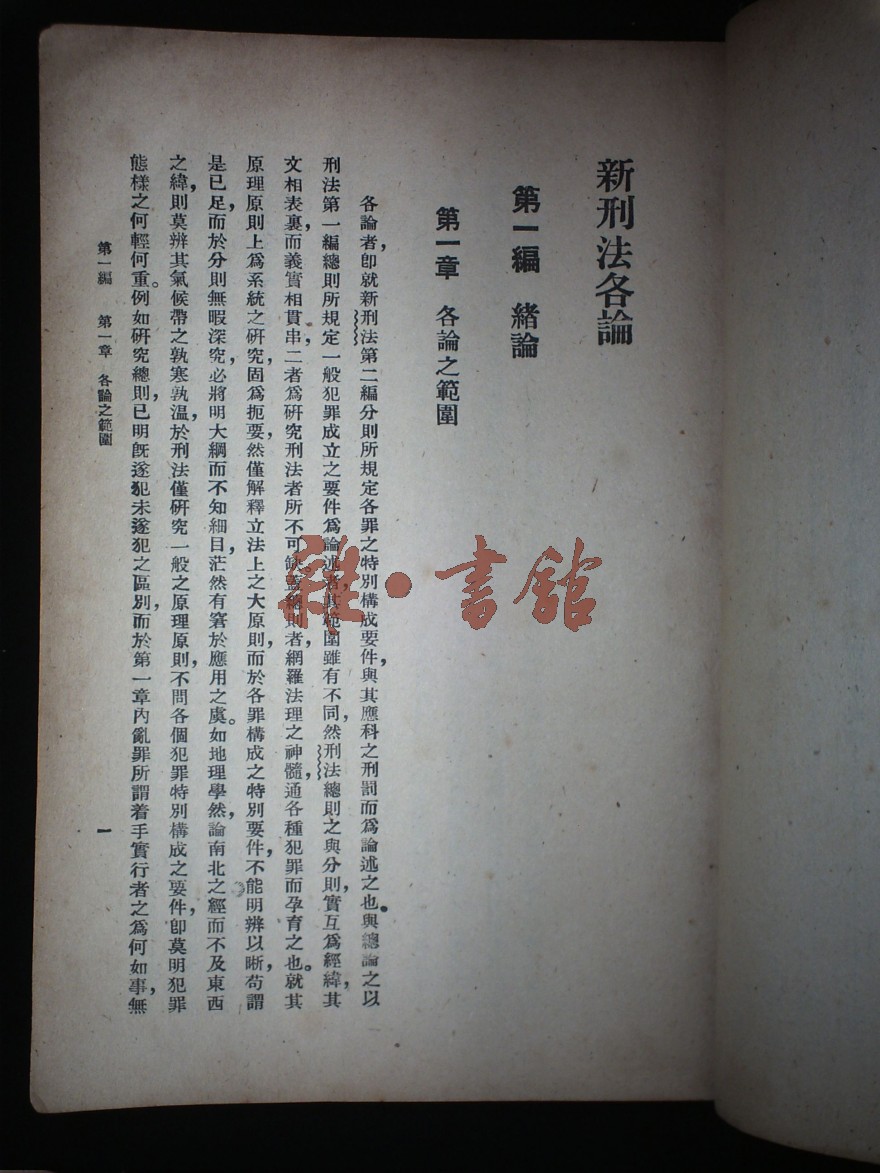 新刑法各論
第一編　緒論
第一章　各論之範圍
各論者，卽就新刑法第二編分則所規定各罪之特別構成要件，與其應科之刑罰而爲論述之也。與總論之以
刑法第一編總則所規定一般犯罪成立之要件爲論述者，其範圍雖有不同，然刑法總則之與分則，實互爲經緯，其
文相表裏，而義實相貫串，二者爲硏究刑法者所不可缺。蓋總則者，網羅法理之神髓，通各種犯罪而孕育之也。就其
原理原則上爲系統之硏究，固爲扼要，然僅解釋立法上之大原則，而於各罪構成之特別要件，不能明辨以晰，苟謂
是已足，而於分則無暇深究，必將明大綱而不知細目，茫然有窘於應用之虞。如地理學然，論南北之經而不及東西
之緯，則莫辨其氣候帶之孰寒孰溫，於刑法僅硏究一般之原理原則，不問各個犯罪特別構成之要件，卽莫明犯罪
態樣之何輕何重。例如硏究總則，已明旣遂犯未遂犯之區別，而於第一章內亂罪所謂着手實行者之爲何如事，無
第一編　第一章　各論之範圍
一
雜·書館